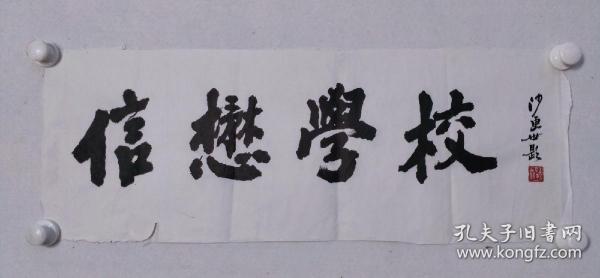 信懋學校
沙更世題
孔夫子旧书网
www.kongfz.com